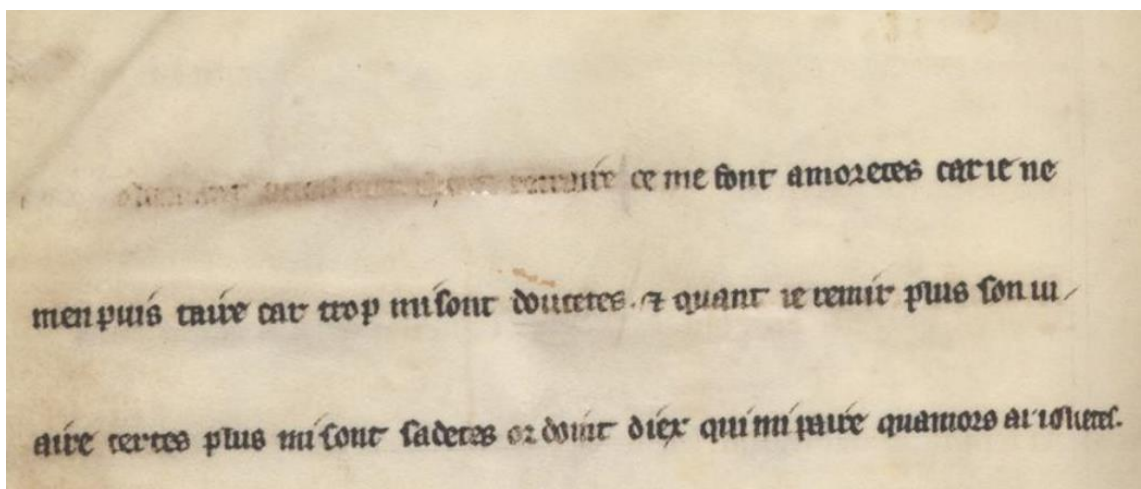 retraire ce me font amoretes car ie ne
men puis taire car trop mi sont doucetes. ⁊ quant ie remir plus son ui
aire certes plus mi sont sadetes or doint diex qui mi paire quamors ai ioliuetes.